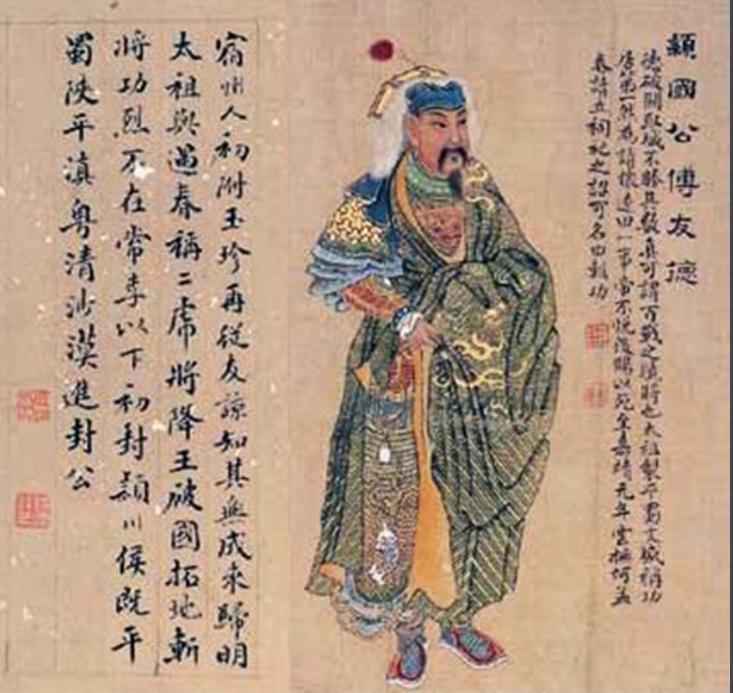 穎國公傅友德
德破關取城不勝其數真可謂百戰之驍將也太祖製平蜀文盛稱功
居第一然為請懷遠田一事帝不悅後賜以死至嘉靖元年雲撫何孟
春請立祠祀之詔可名曰報功
宿州人初附玉珍再從友諒知其無成來歸明
太祖與遇春稱二虎將降王破國拓地斬
將功烈不在常李以下初封穎川侯既平
蜀陝平滇粵清沙漠進封公